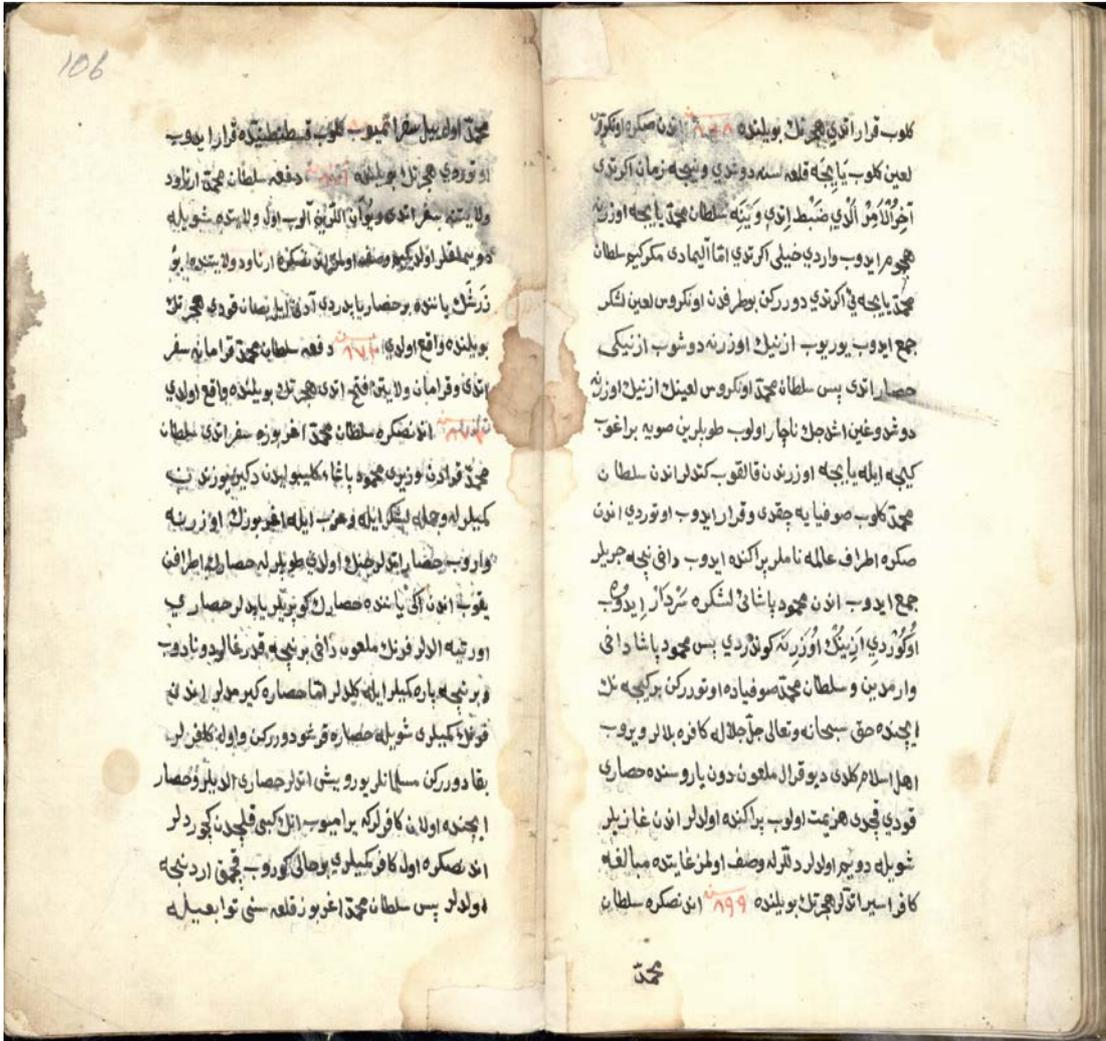 106
كلوب قرار اتدي هجرتك بويلنده اندن صكره اونكروس
لعين كلوب يايجه قلعه سنه دوندي ونيجه زمان اكرتدي
آخر الامر الدي ضبط اتدي وينه سلطان محمد يايجه اوزرنه
هجوم ايدوب واردي خيلي اكرتدي اما آليمادي مكركيم سلطان
محمد يايجه ئي اكرتدي دورركن بو طرفدن اونكروس لعين لشكر
جمع ايدوب يوريوب ازنيك اوزرنه دوشوب ازنيكي
حصار اتدي پس سلطان محمد اونكروس لعينك ازنيك اوزرنه
دوشدوغين اشدجك ناچار اولوب طوپلرين صويه براغوب
كيجه ايله يايجه اوزرندن قالقوب كتدلر اندن سلطان
محمد كلوب صوفيايه چقدي وقرار ايدوب اوتوردي اندن
صكره اطراف عالمه نامه لر پراكنده ايدوب دافي نيجه جريلر
جمع ايدوب اندن محمود پاشائي لشكره سردار ايدوب
اوكوردي ازنيك اوزرنه كوندردي پس محمود پاشا دافي
وارمدين وسلطان محمد صوفياده اوتورركن بر كيجه نك
ايچنده حق سبحانه وتعالى جل جلاله كافره بلالر ويروب
اهل اسلام كلدي ديو قرال ملعون دون ياروسنده حصاري
قودي قچدي هزيمت اولوب پراكنده اولدلر اندن غازيلر
شويله دويم اولدلر دللرله وصف اولمز غايتده مبالغه
كافر اسير اتدلر هجرتك بويلنده سنه ٨٩٩ اندن صكره سلطان
محمد
محمد اول ييل سفر اتميوب كلوب قسطنطنيه ده قرار ايدوب
اوتوردي هجرتك بويلنده دفعه سلطان محمد ارناود
ولايتنه سفر اتدي ويوان اللرين آلوب اول ولايتده شويله
دويملقلر اولدكيم وصف اولمز اندن صكره ارناود ولايتنده بو
زرشك ياننده بر حصار ياپدردي آدني ايل بصان قودي هجرتك
بويلنده واقع اولدي سنه ٨٧٢ دفعه سلطان محمد قرامانه سفر
اتدي وقرامان ولايتن فتح اتدي هجرتك بويلنده واقع اولدي
سنه ٨٧٣ اندن صكره سلطان محمد اغربوزه سفر اتدي سلطان
محمد قرادن وزيري محمود پاشا كليبوليدن دكيز يوزندن
كميلرله وجمله لشكر ايله وعزب ايله اغربوزك اوزرينه
واروب حصار اتدلر جنك اولدي طوپلرله حصارك اطرافن
يقوب اندن اكي ياننده حصارك كوپريلر ياپدلر حصاري
اورتيه الدلر فرنك ملعون دافي بر نيجه قدرغالر دونادوب
وبر نيجه پاره كميلر ايله كلدلر اما حصاره كيرمدلر اندن
فرنك كميلري شويله حصاره قرشو دورركن واول كافرلر
بقا دورركن مسلمانلر يوريش اتدلر حصاري الدلر وحصار
ايچنده اولان كافرلركه يراميوب انك كبي قلچدن كچوردلر
اندن صكره اول كافر كميلري بو حالي كوروب قچمق اردنجه
اولدلر پس سلطان محمد اغربوز قلعه سني توابعيله